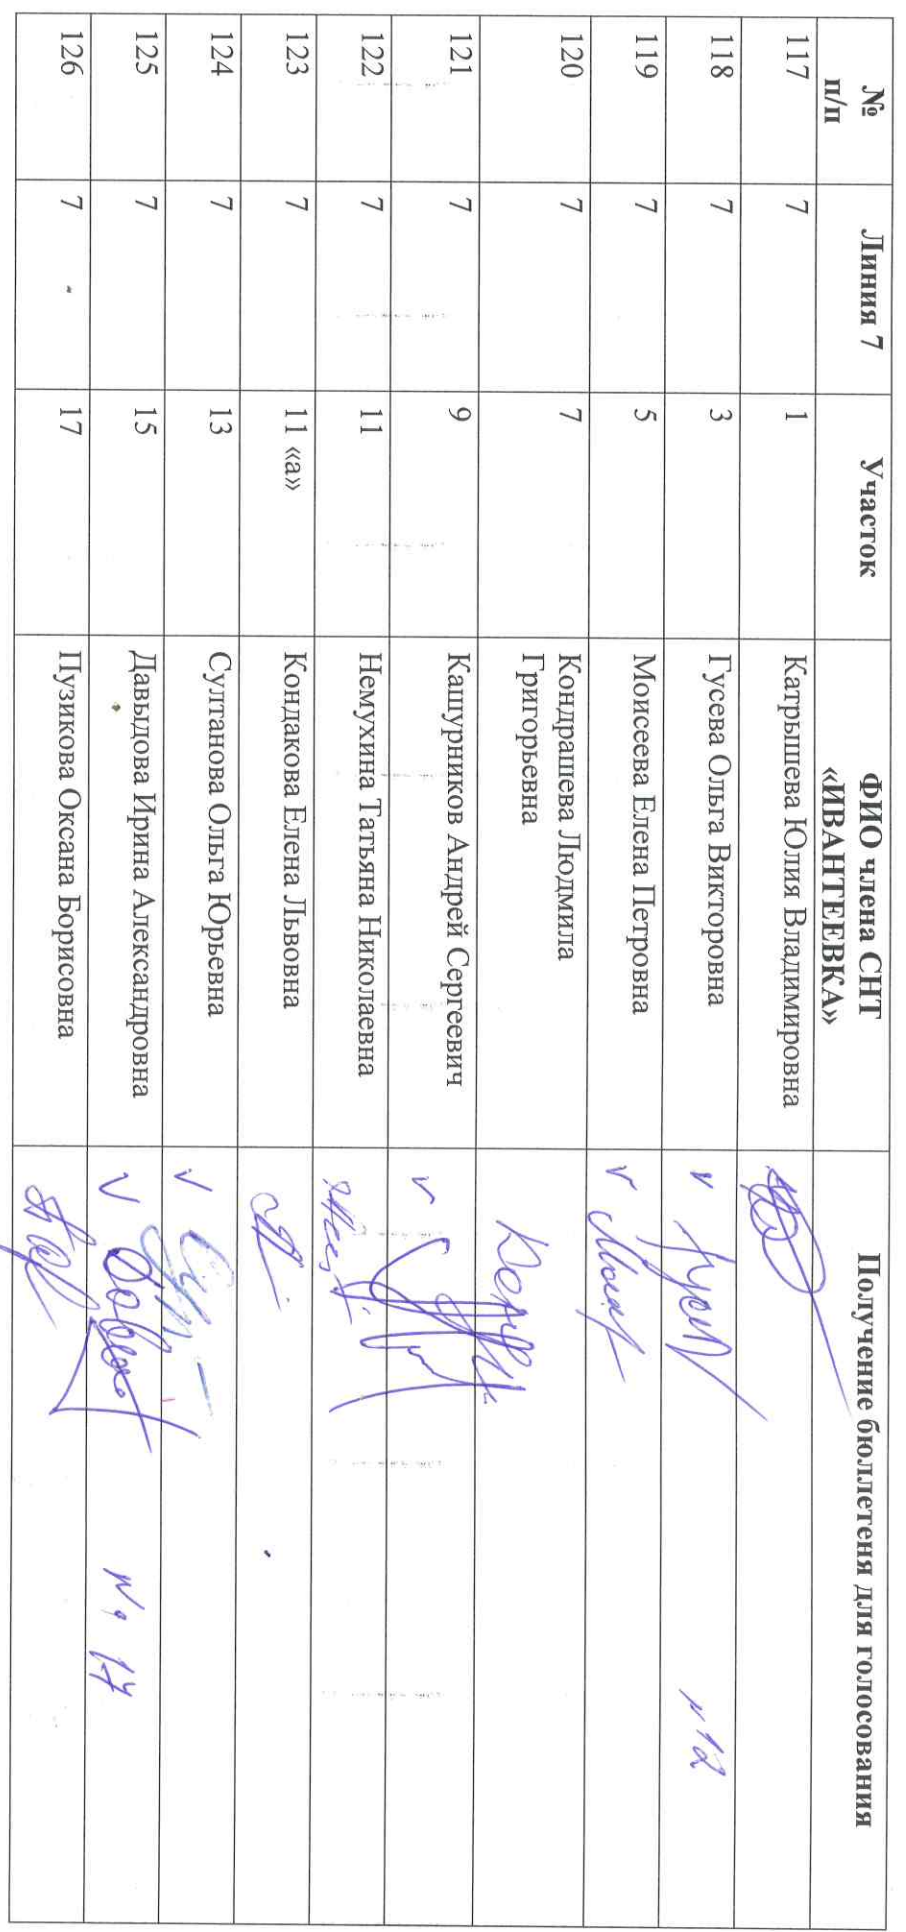 № п/п Линия 7 Участок ФИО члена СНТ «ИВАНТЕЕВКА» Получение бюллетеня для голосования
117 7 1 Катрышева Юлия Владимировна
118 7 3 Гусева Ольга Викторовна v N 12
119 7 5 Моисеева Елена Петровна v
120 7 7 Кондрашева Людмила
Григорьевна
121 7 9 Кашурников Андрей Сергеевич v
122 7 11 Немухина Татьяна Николаевна
123 7 11 «а» Кондакова Елена Львовна
124 7 13 Султанова Ольга Юрьевна v
125 7 15 Давыдова Ирина Александровна v N. 17
126 7 17 Пузикова Оксана Борисовна